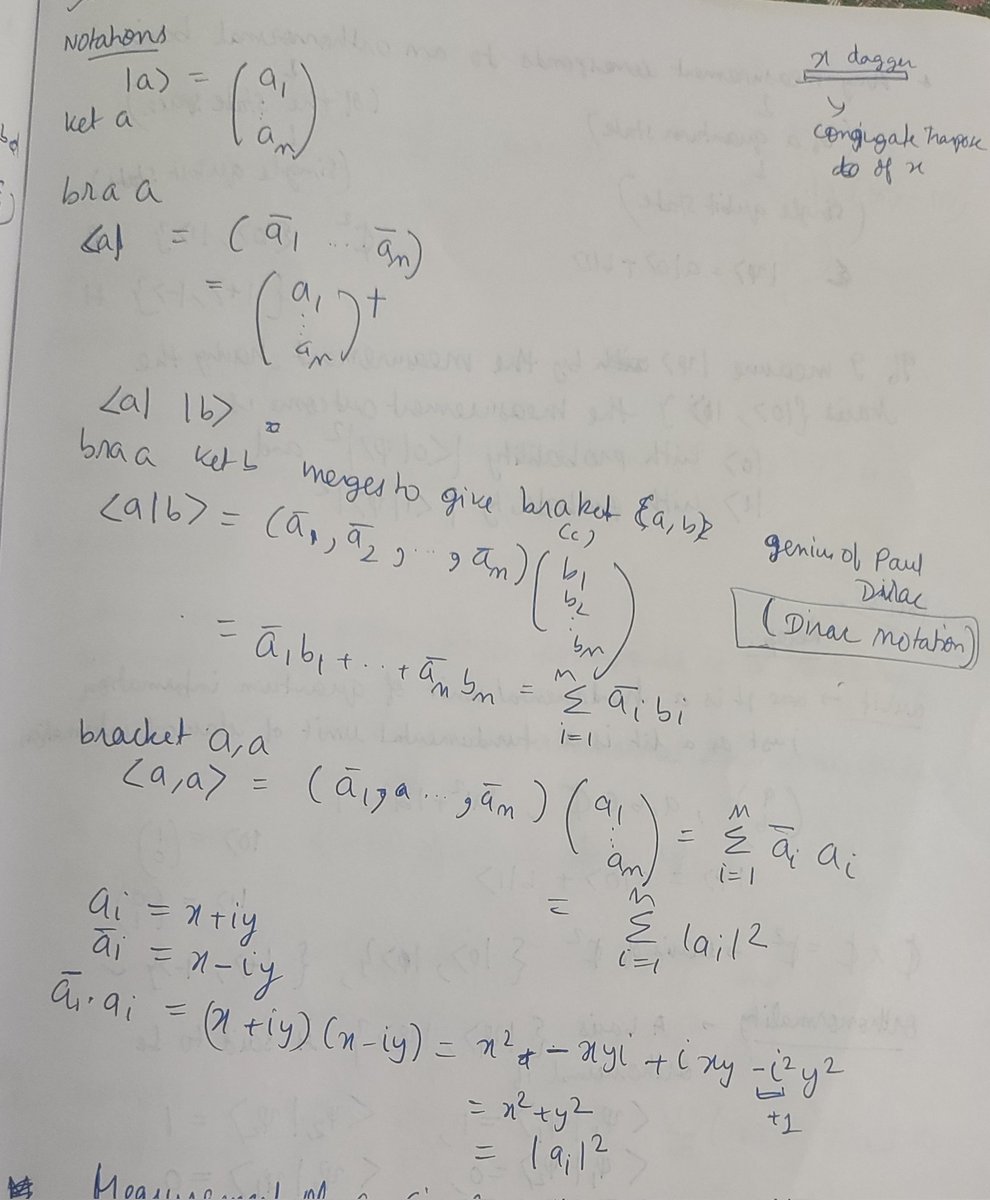 Notations
|a> = (a1 ⋮ an)
ket a
x dagger
conjugate transpose
of x
bra a
<a| = (ā1 ... ān)
= (a1 ⋮ an)†
<a| |b>
bra a ket b merges to give braket {a, b}
<a|b> = (ā1, ā2, ..., ān) (b1 b2 ⋮ bn)
genius of Paul
Dirac
(Dirac notation)
= ā1b1 + ... + ānbn = Σ_{i=1}^{n} āi bi
bracket a, a
<a, a> = (ā1, ..., ān) (a1 ⋮ an) = Σ_{i=1}^{n} āi ai
= Σ_{i=1}^{n} |ai|²
ai = x+iy
āi = x-iy
āi · ai = (x+iy) (x-iy) = x² - xyi + ixy -i²y²
+1
= x²+y²
= |ai|²
Measurement of